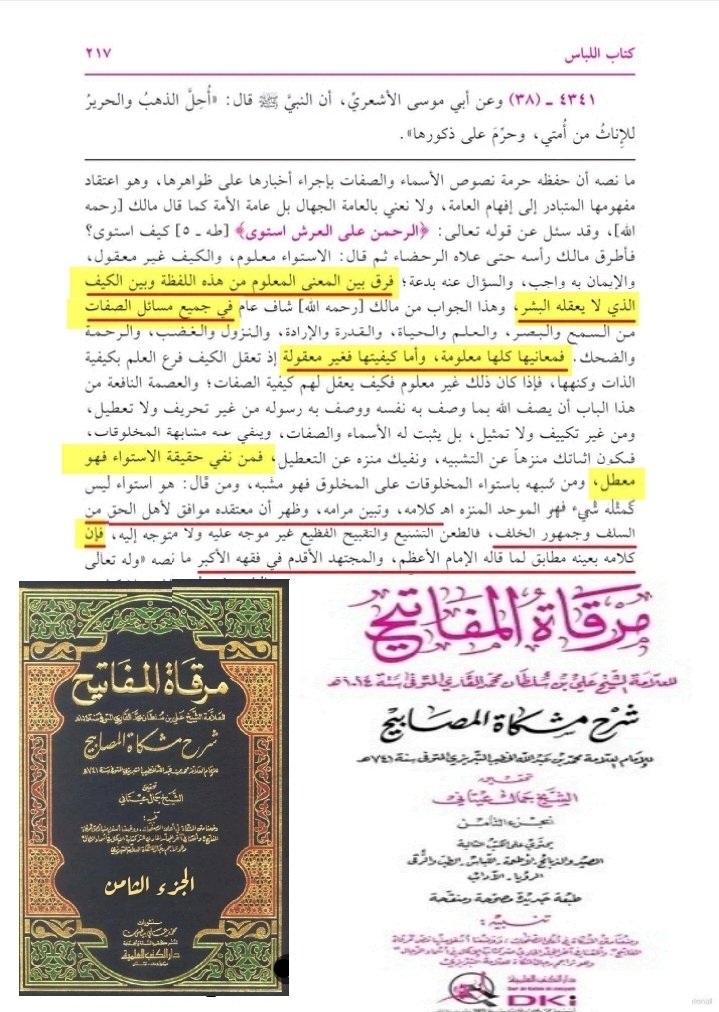 كتاب اللباس
٢١٧
٤٣٤١ ـ (٣٨) وعن أبي موسى الأشعريِّ، أن النبيَّ ﷺ قال: «أُحِلَّ الذهبُ والحريرُ
للإِناثِ من أُمتي، وحرِّمَ على ذكورها».
ما نصه أن حفظه حرمة نصوص الأسماء والصفات بإجراء أخبارها على ظواهرها، وهو اعتقاد
مفهومها المتبادر إلى إفهام العامة، ولا نعني بالعامة الجهال بل عامة الأمة كما قال مالك [رحمه
الله]، وقد سئل عن قوله تعالى: ﴿الرحمن على العرش استوى﴾ [طه ـ ٥] كيف استوى؟
فأطرق مالك رأسه حتى علاه الرحضاء ثم قال: الاستواء معلوم، والكيف غير معقول،
والإيمان به واجب، والسؤال عنه بدعة؛ فرق بين المعنى المعلوم من هذه اللفظة وبين الكيف
الذي لا يعقله البشر، وهذا الجواب من مالك [رحمه الله] شاف عام في جميع مسائل الصفات
من السمع والبصر، والعلم والحياة، والقدرة والإرادة، والنزول والغضب، والرحمة
والضحك. فمعانيها كلها معلومة، وأما كيفيتها فغير معقولة إذ تعقل الكيف فرع العلم بكيفية
الذات وكنهها، فإذا كان ذلك غير معلوم فكيف يعقل لهم كيفية الصفات؛ والعصمة النافعة من
هذا الباب أن يصف الله بما وصف به نفسه ووصف به رسوله من غير تحريف ولا تعطيل،
ومن غير تكييف ولا تمثيل، بل يثبت له الأسماء والصفات، وينفي عنه مشابهة المخلوقات،
فيكون إثباتك منزهاً عن التشبيه، ونفيك منزه عن التعطيل، فمن نفي حقيقة الاستواء فهو
معطل، ومن شبهه باستواء المخلوقات على المخلوق فهو مشبه، ومن قال: هو استواء ليس
كمثله شيء فهو الموحد المنزه اهـ كلامه، وتبين مرامه، وظهر أن معتقده موافق لأهل الحق من
السلف وجمهور الخلف، فالطعن التشنيع والتقبيح الفظيع غير موجه عليه ولا متوجه إليه، فإن
كلامه بعينه مطابق لما قاله الإمام الأعظم، والمجتهد الأقدم في فقهه الأكبر ما نصه «وله تعالى
مرقاة المفاتيح
للعلامة الشيخ علي بن سلطان محمد القاري المتوفى سنة ١٠١٤هـ
شرح مشكاة المصابيح
للإمام العلامة محمد بن عبد الله الخطيب التبريزي المتوفى سنة ٧٤١هـ
تحقيق
الشيخ جمال عيتاني
الجزء الثامن
يحتوي على الكتب التالية
الصيد والذبائح ـ الأطعمة ـ اللباس ـ الطب والرقى
الرؤيا ـ الآداب
طبعة جديدة مصححة ومنقحة
تنبيه:
دار الكتب العلمية
DKi
مرقاة المفاتيح
للعلامة الشيخ علي بن سلطان محمد القاري المتوفى سنة ١٠١٤هـ
شرح مشكاة المصابيح
للإمام العلامة محمد بن عبد الله الخطيب التبريزي المتوفى سنة ٧٤١هـ
تحقيق
الشيخ جمال عيتاني
تنبيه:
الجزء الثامن
منشورات
محمد علي بيضون
دار الكتب العلمية